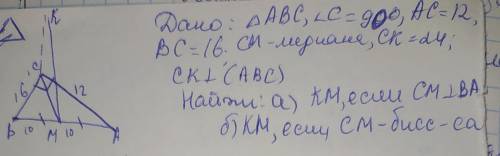 Дано: △ABC, ∠C=90°, AC=12,
BC=16. CM-медиана, CK=24;
CK⊥(ABC)
Найти: а) KM, если CM⊥BA
б) KM, если CM-бисс-са
K
C
16
12
B
10
M
10
A